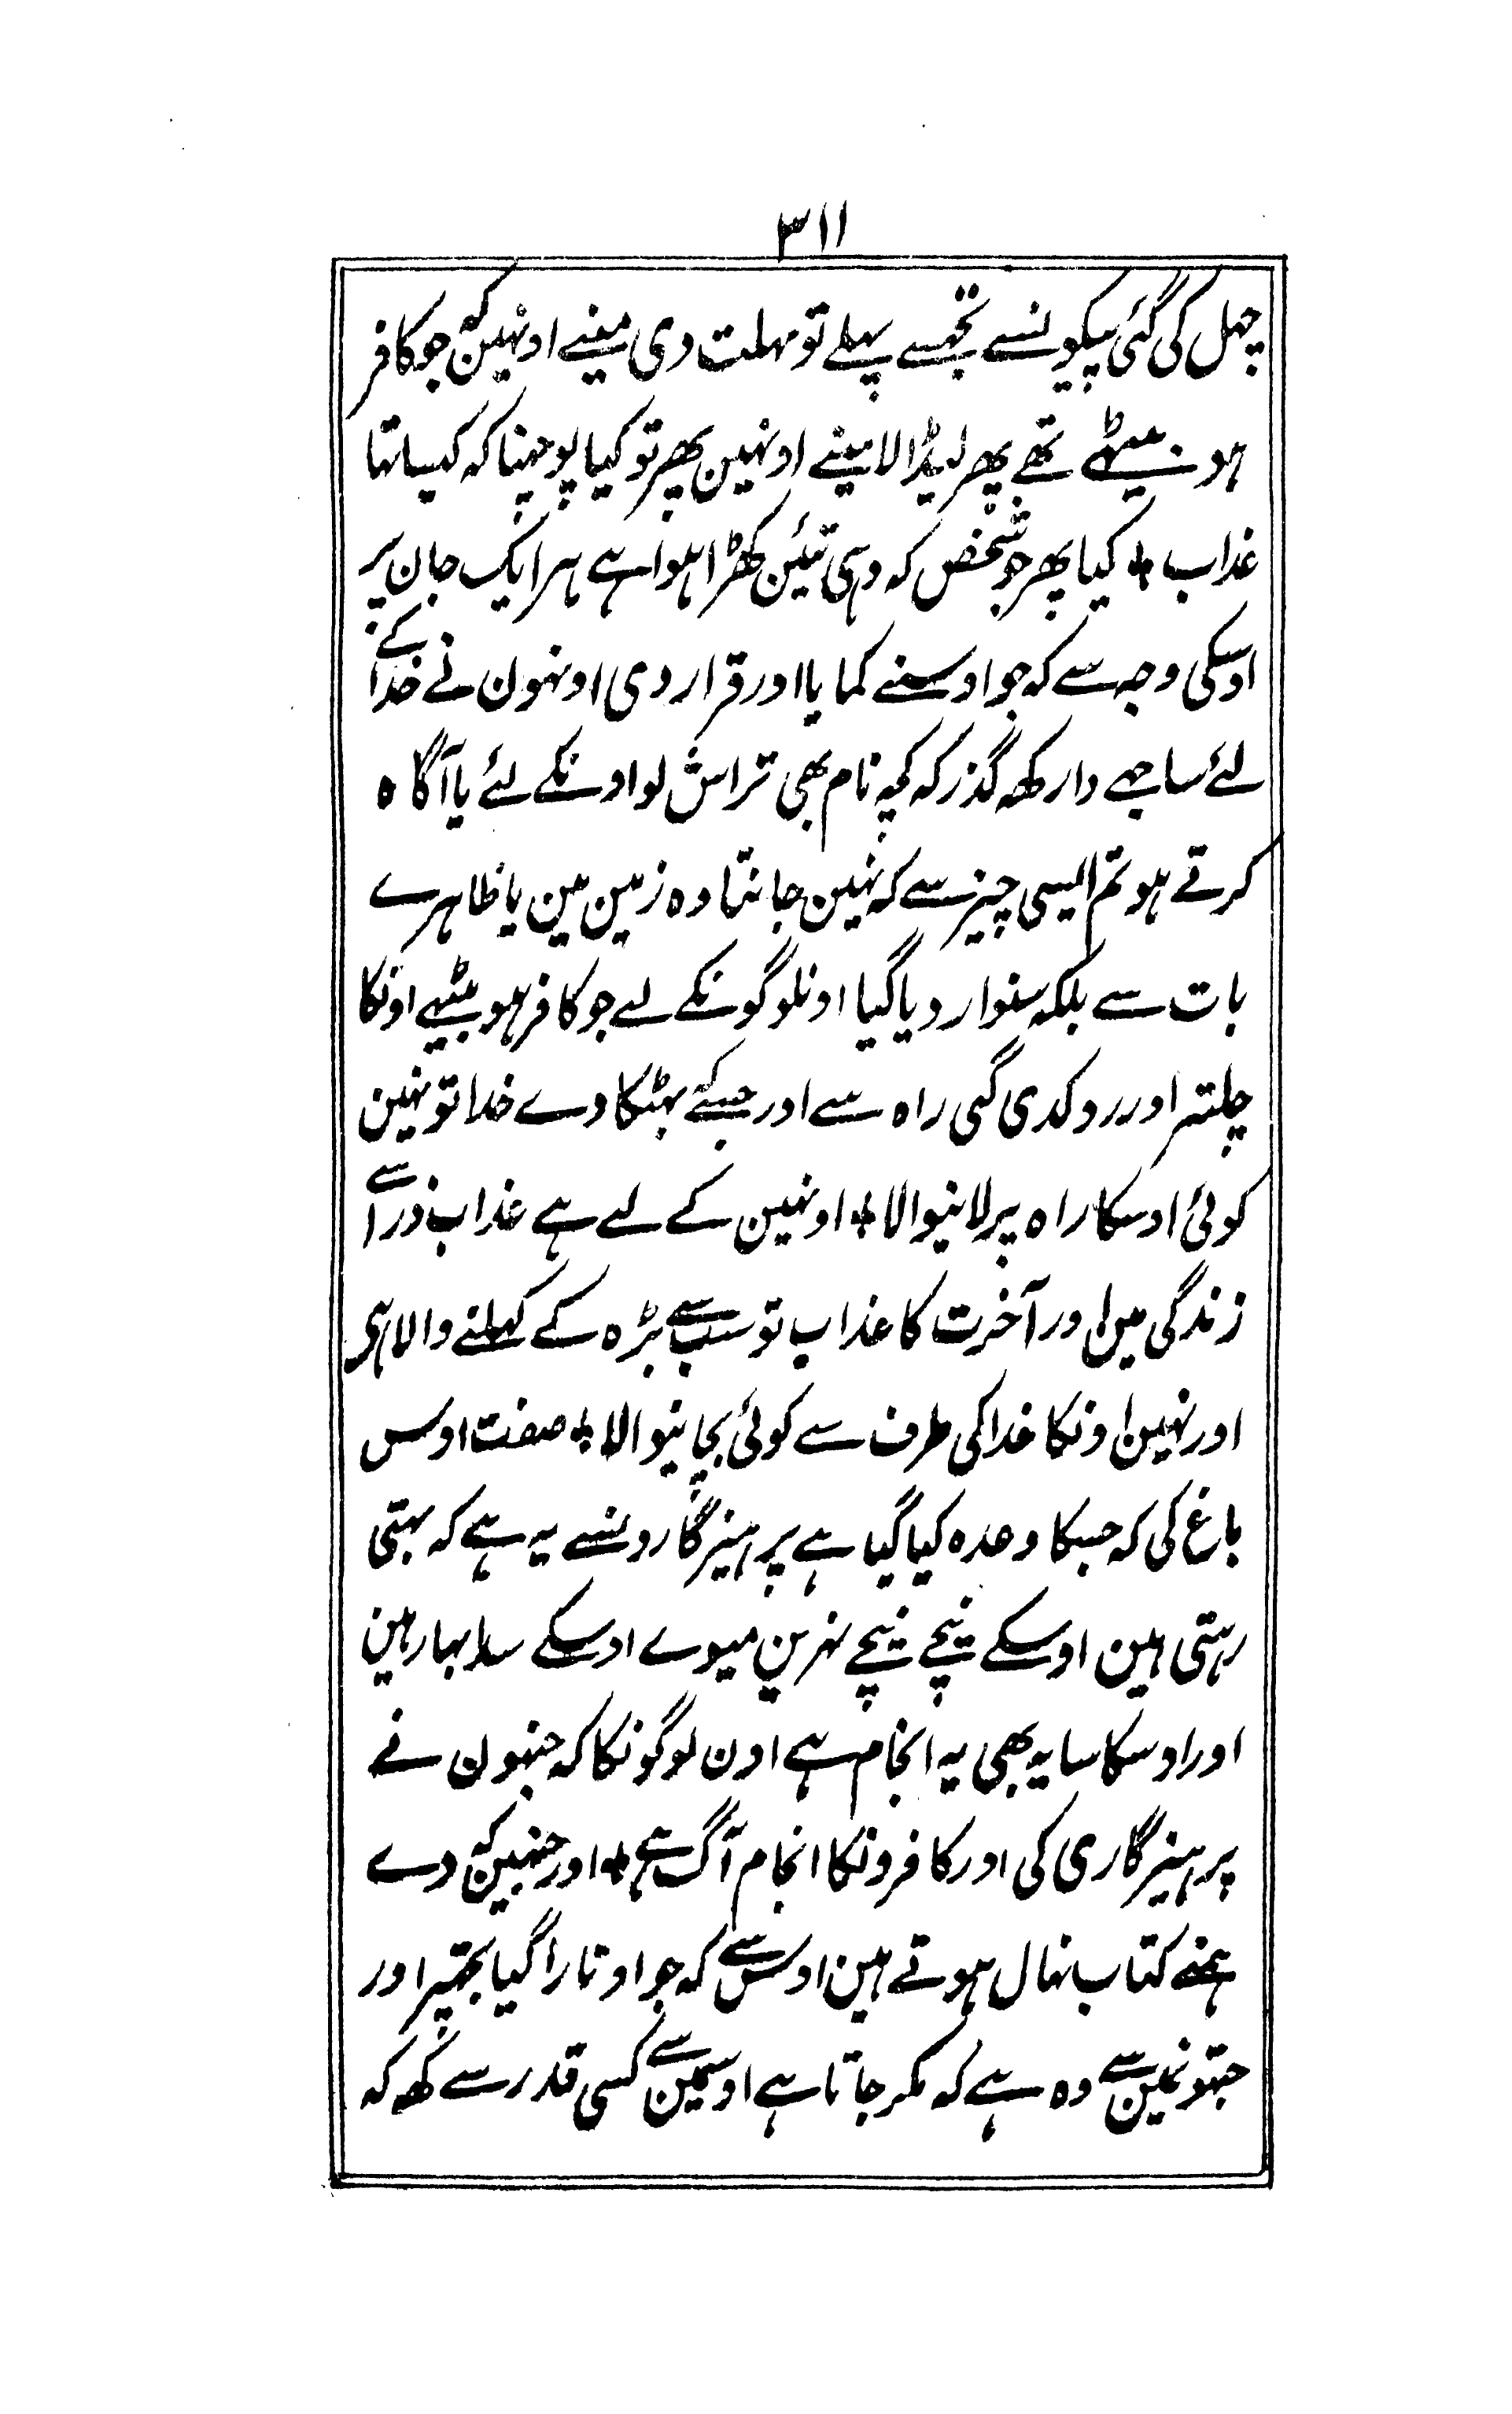 ۳۱۱
چہل کی گئی پیکونسے تجہسے پہلے تو مہلت دی مینے اونہین کہ جو کافر
ہو بیٹھے تھے پھر لیڈالا مینے اونہین پھر تو کیا پوچہنا کہ کیسا تہا
عذاب ٭ کیا پھر جو شخص کہ وہی تئین کھڑا ہوا ہے ہر ایک جان پر
اوسکی وجہ سے کہ جو اوسنے کمایا اور قرار دی اونہون نے خدا کے
لئے ساجہے دار کھہ گذر کہ کچہ نام بھی تراش لو اونکے لئے یا آگاہ
کرتے ہو تم ایسی چیز سے کہ نہین جانتا وہ زمین مین یا ظاہرے
بات سے بلکہ سنوار دیا گیا اونلوگونکے لے جو کافر ہو بیٹہے اونکا
چلتر اور روکدی گئی راہ سے اور جسے بہٹکا دے خدا تو نہین
کوئی اوسکا راہ پر لانیوالا ٭ اونہین کے لے ہے عذاب ذرا سے
زندگی مین اور آخرت کا عذاب تو سب سے بڑہ کے کہلنے والا ہی
اور نہین اونکا خدا کی طرف سے کوئی بچانیوالا ٭ صفت اوس
باغ کی کہ جسکا وعدہ کیا گیا ہے پرہیزگارونسے یہ ہے کہ بہتی
رہتی ہین اوسکے نیچے نیچے نہرین میوے اوسکے سدا بہار ہین
اور اوسکا سایہ بھی یہ انجام ہے اون لوگونکا کہ جنہون نے
پرہیزگاری کی اور کافرونکا انجام آگ ہے ٭ اور جنہین کہ دے
ہمنے کتاب نہال ہوتے ہین اوس سے کہ جو اوتارا گیا تجہپر اور
جتھونمین سے وہ ہے کہ مکر جاتا ہے اوسمین سے کسی قدر سے کھہ کہ